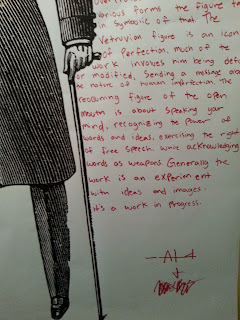 various forms the figure ta
is symbolic of that. The
Vetruvian figure is an icon
of Perfection, much of the
work involves him being defo
or modified, Sending a message about
the nature of human imperfection. The
reoccuring figure of the open
mouth is about speaking your
mind, recognizing the power of
words and ideas, exercising the right
of free speech while acknowledging
words as weapons. Generally the
work is an experiement
with ideas and images.
it's a work in progress.